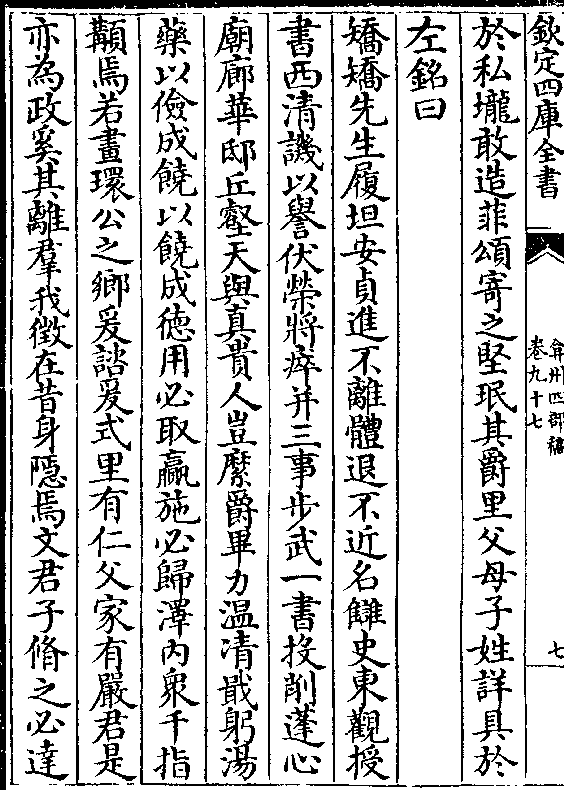 欽定四庫全書
弇州四部稿
卷九十七
七
於私壠敢造菲頌寄之堅珉其爵里父母子姓詳具於
左銘曰
矯矯先生履坦安貞進不離體退不近名讎史東觀授
書西清譏以譽伏榮將瘁并三事步武一書投削蓬心
廟廊華邸丘壑天與真貴人豈縻爵畢力温清戢躬湯
藥以儉成饒以饒成徳用必取羸施必歸澤内衆千指
顜焉若畫環公之鄉爰諮爰式里有仁父家有嚴君是
亦為政奚其離羣我徴在昔身隠焉文君子脩之必達